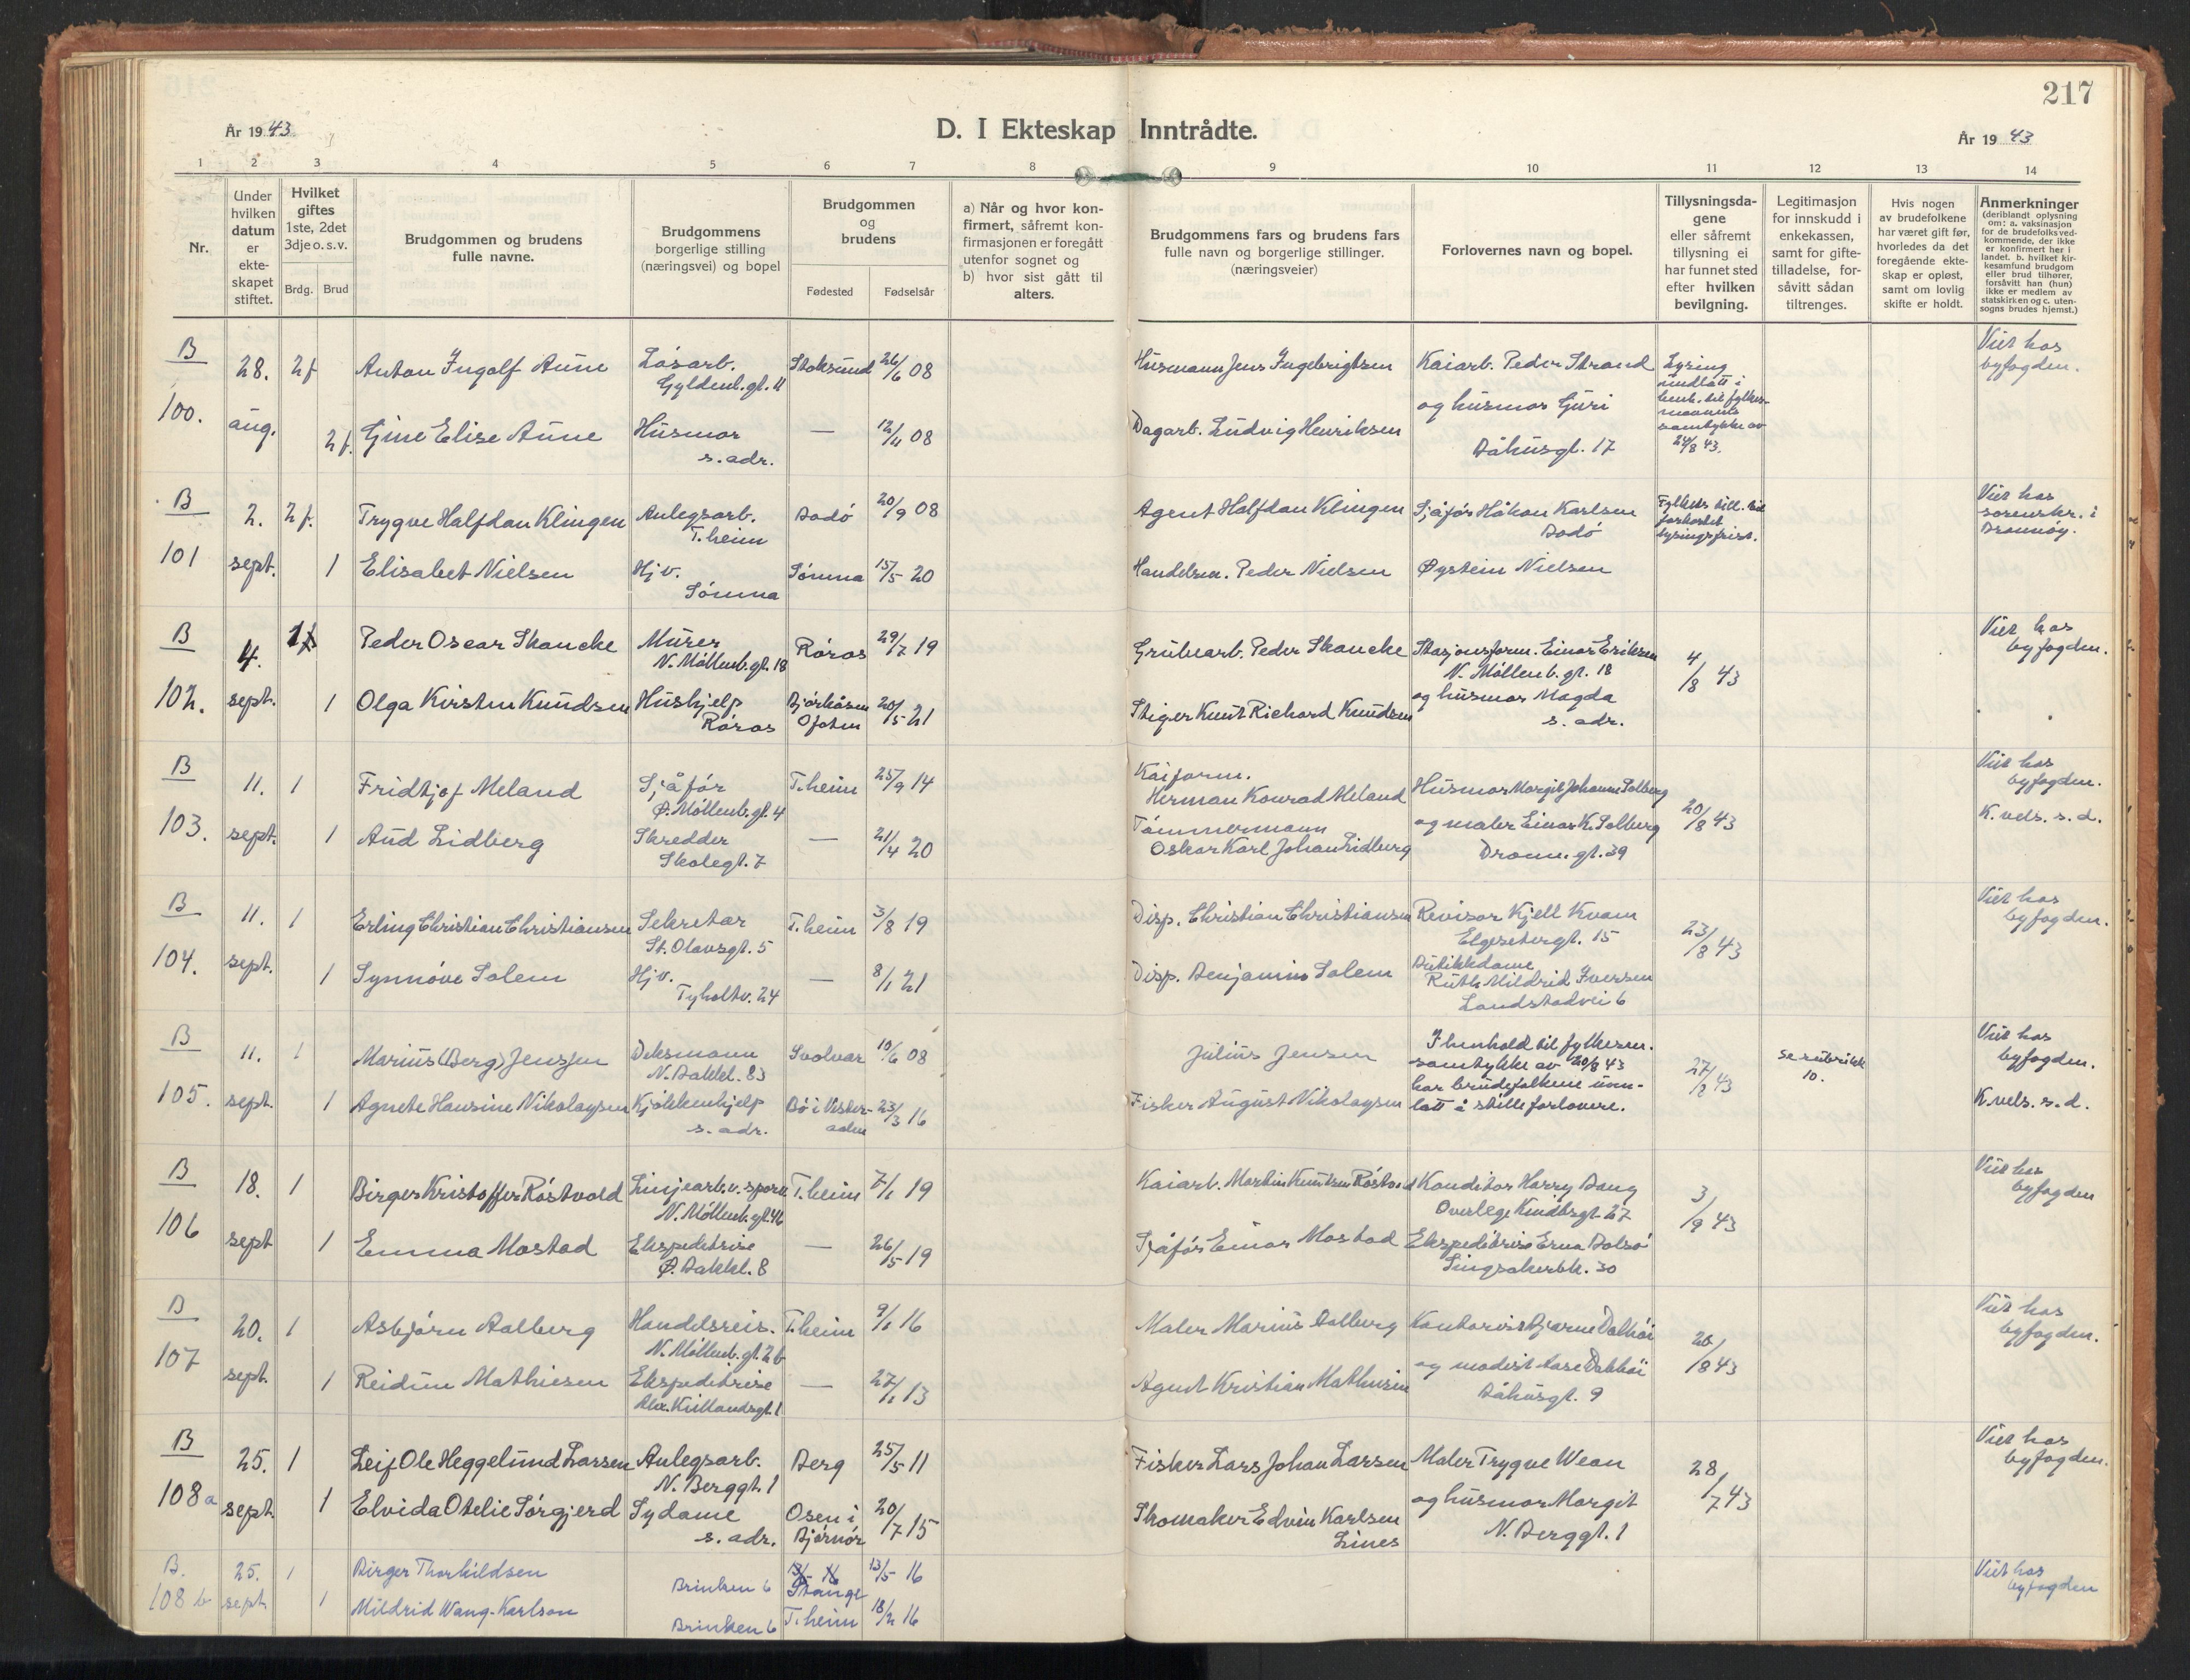 217
År 1943.
D. I Ekteskap Inntrådte.
År 1943
1 2 3 4 5 6 7 8 9 10 11 12 13 14
Nr.
Under hvilken datum er ekte-skapet stiftet.
Hvilket giftes 1ste, 2det 3dje o.s.v.
Brdg. Brud
Brudgommen og brudens fulle navne.
Brudgommens borgerlige stilling (næringsvei) og bopel
Brudgommen og brudens
Fødested Fødselsår
a) Når og hvor kon-firmert, såfremt kon-firmasjonen er foregått utenfor sognet og
b) hvor sist gått til alters.
Brudgommens fars og brudens fars fulle navn og borgerlige stillinger. (næringsveier)
Forlovernes navn og bopel.
Tillysningsda-gene eller såfremt tillysning ei har funnet sted efter hvilken bevilgning.
Legitimasjon for innskudd i enkekassen, samt for gifte-tilladelse, for-såvitt sådan tiltrenges.
Hvis nogen av brudefolkene har været gift før, hvorledes da det foregående ekte-skap er opløst, samt om lovlig skifte er holdt.
Anmerkninger (deriblandt oplysning om: a. vaksinasjon for de brudefolk ved-kommende, der ikke er konfirmert her i landet. b. hvilket kir-kesamfund brudgom eller brud tilhører, forsåvitt han (hun) ikke er medlem av statskirken og c. uten-sogns brudes hjemst.)
B 28. 2f Anton Ingolf Aune Løsarb. Gyldenl.gt. 11 Stoksund 26/6 08 Husmann Jens Ingebrigtsen Kaiarb. Peder Strand Lysing unnlatt i henh. til fylkes-mannens samtykke av 24/8 43. Viet hos byfogden.
100. aug. 2f. Gine Elise Aune Husmor s. adr. — 12/11 08 Dagarb. Ludvig Henriksen og husmor Guri Båhusgt. 17
B 2. 2f. Trygve Halfdan Klingen Anlegsarb. T.heim Bodö 20/9 08 Agent Halfdan Klingen Sjåfør Håkon Karlsen Bodö Fylkets till. til forkortet lysingsfrist. Viet hos sorenskr. i Brönnöy.
101 sept. 1 Elisabet Nielsen Hjv. Sömna Sömna 15/5 20 Handelsm. Peder Nielsen Øystein Nielsen
B 4. Peder Oscar Skancke Murer N. Möllenb.gt. 18 Röros 29/7 19 Grubearb. Peder Skancke Stasjonsform. Einar Eriksen N. Möllenb.gt. 18 4/8 43 Viet hos byfogden.
102. sept. 1 Olga Kirsten Knudsen Hushjelp Röros Bjørkåsen Ofoten 20/5 21 Stiger Knut Richard Knudsen og husmor Magda s. adr.
B 11. 1 Fridtjof Meland Sjåför Ø. Möllenb.gt. 4 T.heim 25/9 14 Kaiform. Herman Konrad Meland Husmor Margit Johanne Solberg 20/8 43 Viet hos byfogden.
103. sept. 1 Aud Lidberg Skredder Skolegt. 7 — 21/4 20 Tömmermann Oskar Karl Johan Lidberg og maler Einar K. Solberg Dronn.gt. 39 K. vels. s. d.
B 11. 1 Erling Christian Christiansen Sekretær St. Olavsgt. 5 T.heim 3/8 19 Disp. Christian Christiansen Revisor Kjell Kvam Elgesetergt. 15 23/8 43 Viet hos byfogden.
104. sept. 1 Synnöve Solem Hjv. Tyholtv. 24 — 8/1 21 Disp. Benjamin Solem Butikkdame Ruth Mildrid Iversen Landstadvei 6
B 11. 1 Marius (Berg) Jensen Deksmann N. Bakkl. 83 Svolvær 10/6 08 Julius Jensen I henhold til fylkesm. samtykke av 20/8 43 27/8 43 se rubrikk 10. Viet hos byfogden.
105. sept. 1 Agnete Hansine Nikolaysen Kjökkenhjelp s. adr. Bö i Vester-aalen 23/3 16 Fisker August Nikolaysen har brudefolkene unn-latt å stille forlovere. K. vels. s. d.
B 18. 1 Birger Kristoffer Röstvold Linjearb. v. sporv. N. Möllenb.gt. 46 T.heim 7/1 19 Kaiarb. Martin Knutsen Röstvold Konditor Harry Bang Overlege Kindtsgt. 27 3/9 43 Viet hos byfogden
106 sept 1 Emma Mostad Ekspeditrise Ø. Bakkl. 8 — 26/5 19 Sjåför Einar Mostad Ekspeditrise Erna Bolsö Singsakerbk. 30
B 20. 1 Asbjörn Aalberg Handelsreis. N. Möllenb.gt. 2b T.heim 9/1 16 Maler Marius Aalberg Kontorist Bjarne Dalhöi 20/8 43 Viet hos byfogden.
107 sept. 1 Reidun Mathiesen Ekspeditrise Alex. Kiellandsgt. 1 — 27/1 13 Agent Kristian Mathiesen og modist Aase Dalhöi Båhusgt. 9
B 25. 1 Leif Ole Heggelund Larsen Anlegsarb. N. Berggt. 1 Berg 25/5 11 Fisker Lars Johan Larsen Maler Trygve Wean 28/7 43 Viet hos byfogden.
108a sept. 1 Elvida Otelie Sörgjerd Sydame s. adr. Osen i Björnör 20/7 15 Skomaker Edvin Karlsen Lines og husmor Margit N. Berggt. 1
B. 25. 1 Birger Thorkildsen Brinken 6 Stange 13/5 16 Viet hos byfogden
108 b sept 1 Mildrid Wang-Karlson Brinken 6 T.heim 18/2 16